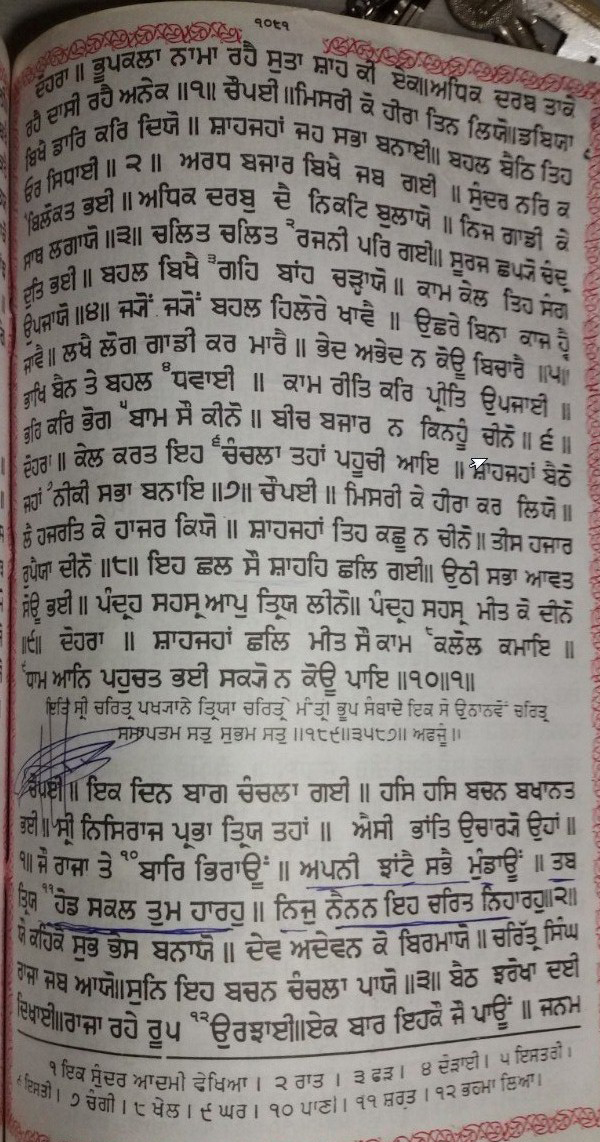 ੧੦੯੧
ਦੋਹਰਾ ॥ ਭੂਪਕਲਾ ਨਾਮਾ ਰਹੈ ਸੁਤਾ ਸ਼ਾਹ ਕੀ ਏਕ॥ਅਧਿਕ ਦਰਬ ਤਾਕੇ
ਰਹੈ ਦਾਸੀ ਰਹੈ ਅਨੇਕ ॥੧॥ ਚੌਪਈ ॥ਮਿਸਰੀ ਕੋ ਹੀਰਾ ਤਿਨ ਲਿਯੋ॥ਡਬਿਯਾ
ਬਿਖੈ ਡਾਰਿ ਕਰਿ ਦਿਯੋ ॥ ਸ਼ਾਹਜਹਾਂ ਜਹ ਸਭਾ ਬਨਾਈ॥ ਬਹਲ ਬੈਠਿ ਤਿਹ
ਓਰ ਸਿਧਾਈ ॥ ੨ ॥ ਅਰਧ ਬਜਾਰ ਬਿਖੈ ਜਬ ਗਈ ॥ ਸੁੰਦਰ ਨਰਿ ਕ
੧ਬਿਲੋਕਤ ਭਈ ॥ ਅਧਿਕ ਦਰਬੁ ਦੈ ਨਿਕਟਿ ਬੁਲਾਯੋ ॥ ਨਿਜ ਗਾਡੀ ਕੇ
ਸਾਥ ਲਗਾਯੋ ॥੩॥ ਚਲਿਤ ਚਲਿਤ ੨ਰਜਨੀ ਪਰਿ ਗਈ॥ ਸੂਰਜ ਛਪਯੋ ਚੰਦ੍ਰ
ਦੁਤਿ ਭਈ ॥ ਬਹਲ ਬਿਖੈ ੩ਗਹਿ ਬਾਂਹ ਚੜ੍ਹਾਯੋ ॥ ਕਾਮ ਕੇਲ ਤਿਹ ਸੰਗ
ਉਪਜਾਯੋ ॥੪॥ ਜ੍ਯੋਂ ਜ੍ਯੋਂ ਬਹਲ ਹਿਲੋਰੇ ਖਾਵੈ ॥ ਉਛਰੇ ਬਿਨਾ ਕਾਜ ਹ੍ਵੈ
ਜਾਵੈ॥ ਲਖੈ ਲੋਗ ਗਾਡੀ ਕਰ ਮਾਰੈ ॥ ਭੇਦ ਅਭੇਦ ਨ ਕੋਊ ਬਿਚਾਰੈ ॥੫॥
ਭਾਖਿ ਬੈਨ ਤੇ ਬਹਲ ੪ਧਵਾਈ ॥ ਕਾਮ ਰੀਤਿ ਕਰਿ ਪ੍ਰੀਤਿ ਉਪਜਾਈ ॥
ਭਰਿ ਕਰਿ ਭੋਗ ੫ਬਾਮ ਸੌ ਕੀਨੋ ॥ ਬੀਚ ਬਜਾਰ ਨ ਕਿਨਹੂੰ ਚੀਨੋ ॥ ੬ ॥
ਦੋਹਰਾ ॥ ਕੇਲ ਕਰਤ ਇਹ ੬ਚੰਚਲਾ ਤਹਾਂ ਪਹੂਚੀ ਆਇ ॥ ਸ਼ਾਹਜਹਾਂ ਬੈਠੋ
ਜਹਾਂ ੭ਨੀਕੀ ਸਭਾ ਬਨਾਇ ॥੭॥ ਚੌਪਈ ॥ ਮਿਸਰੀ ਕੇ ਹੀਰਾ ਕਰ ਲਿਯੋ ॥
ਲੈ ਹਜਰਤਿ ਕੇ ਹਾਜਰ ਕਿਯੋ ॥ ਸ਼ਾਹਜਹਾਂ ਤਿਹ ਕਛੂ ਨ ਚੀਨੋ॥ ਤੀਸ ਹਜਾਰ
ਰੁਪੈਯਾ ਦੀਨੋ ॥੮॥ ਇਹ ਛਲ ਸੌ ਸ਼ਾਹਹਿ ਛਲਿ ਗਈ॥ ਉਠੀ ਸਭਾ ਆਵਤ
ਸੋਊ ਭਈ ॥ ਪੰਦ੍ਰਹ ਸਹਸ੍ਰ ਆਪੁ ਤ੍ਰਿਯ ਲੀਨੋ॥ ਪੰਦ੍ਰਹ ਸਹਸ੍ਰ ਮੀਤ ਕੋ ਦੀਨੋ
॥੯॥ ਦੋਹਰਾ ॥ ਸ਼ਾਹਜਹਾਂ ਛਲਿ ਮੀਤ ਸੌ ਕਾਮ ੮ਕਲੋਲ ਕਮਾਇ ॥
੯ਧਾਮ ਆਨਿ ਪਹੁਚਤ ਭਈ ਸਕ੍ਯੋ ਨ ਕੋਊ ਪਾਇ ॥੧੦॥੧॥
ਇਤਿ ਸ੍ਰੀ ਚਰਿਤ੍ਰ ਪਖ੍ਯਾਨੇ ਤ੍ਰਿਯਾ ਚਰਿਤ੍ਰੇ ਮੰਤ੍ਰੀ ਭੂਪ ਸੰਬਾਦੇ ਇਕ ਸੋ ਉਨਾਨਵੋਂ ਚਰਿਤ੍ਰ
ਸਮਾਪਤਮ ਸਤੁ ਸੁਭਮ ਸਤੁ ॥੧੮੯॥੩੫੮੭॥ ਅਫਜੂੰ ॥
ਚੌਪਈ॥ ਇਕ ਦਿਨ ਬਾਗ ਚੰਚਲਾ ਗਈ ॥ ਹਸਿ ਹਸਿ ਬਚਨ ਬਖਾਨਤ
ਭਈ ॥ ਸ੍ਰੀ ਨਿਸਿਰਾਜ ਪ੍ਰਭਾ ਤ੍ਰਿਯ ਤਹਾਂ ॥ ਐਸੀ ਭਾਂਤਿ ਉਚਾਰਯੋ ਉਹਾਂ ॥
੧॥ ਜੌ ਰਾਜਾ ਤੇ ੧੦ਬਾਰਿ ਭਿਰਾਊਂ ॥ ਅਪਨੀ ਝਾਂਟੈ ਸਭੈ ਮੁੰਡਾਊਂ ॥ ਤਬ
ਤ੍ਰਿਯ ੧੧ਹੋਡ ਸਕਲ ਤੁਮ ਹਾਰਹੁ ॥ ਨਿਜੁ ਨੈਨਨ ਇਹ ਚਰਿਤ ਨਿਹਾਰਹੁ॥੨॥
ਯੌ ਕਹਿਕੈ ਸੁਭ ਭੇਸ ਬਨਾਯੋ ॥ ਦੇਵ ਅਦੇਵਨ ਕੋ ਬਿਰਮਾਯੋ ॥ ਚਰਿੱਤ੍ਰ ਸਿੰਘ
ਰਾਜਾ ਜਬ ਆਯੋ॥ਸੁਨਿ ਇਹ ਬਚਨ ਚੰਚਲਾ ਪਾਯੋ ॥੩॥ ਬੈਠ ਝਰੋਖਾ ਦਈ
ਦਿਖਾਈ॥ਰਾਜਾ ਰਹੇ ਰੂਪ ੧੨ਉਰਝਾਈ॥ਏਕ ਬਾਰ ਇਹਕੌ ਜੌ ਪਾਊਂ ॥ ਜਨਮ
੧ ਇਕ ਸੁੰਦਰ ਆਦਮੀ ਵੇਖਿਆ। ੨ ਰਾਤ। ੩ ਫੜ। ੪ ਦੌੜਾਈ। ੫ ਇਸਤਰੀ।
੬ ਇਸਤ੍ਰੀ। ੭ ਚੰਗੀ। ੮ ਖੇਲ। ੯ ਘਰ। ੧੦ ਪਾਣੀ। ੧੧ ਸ਼ਰਤ। ੧੨ ਭਰਮਾ ਲਿਆ।